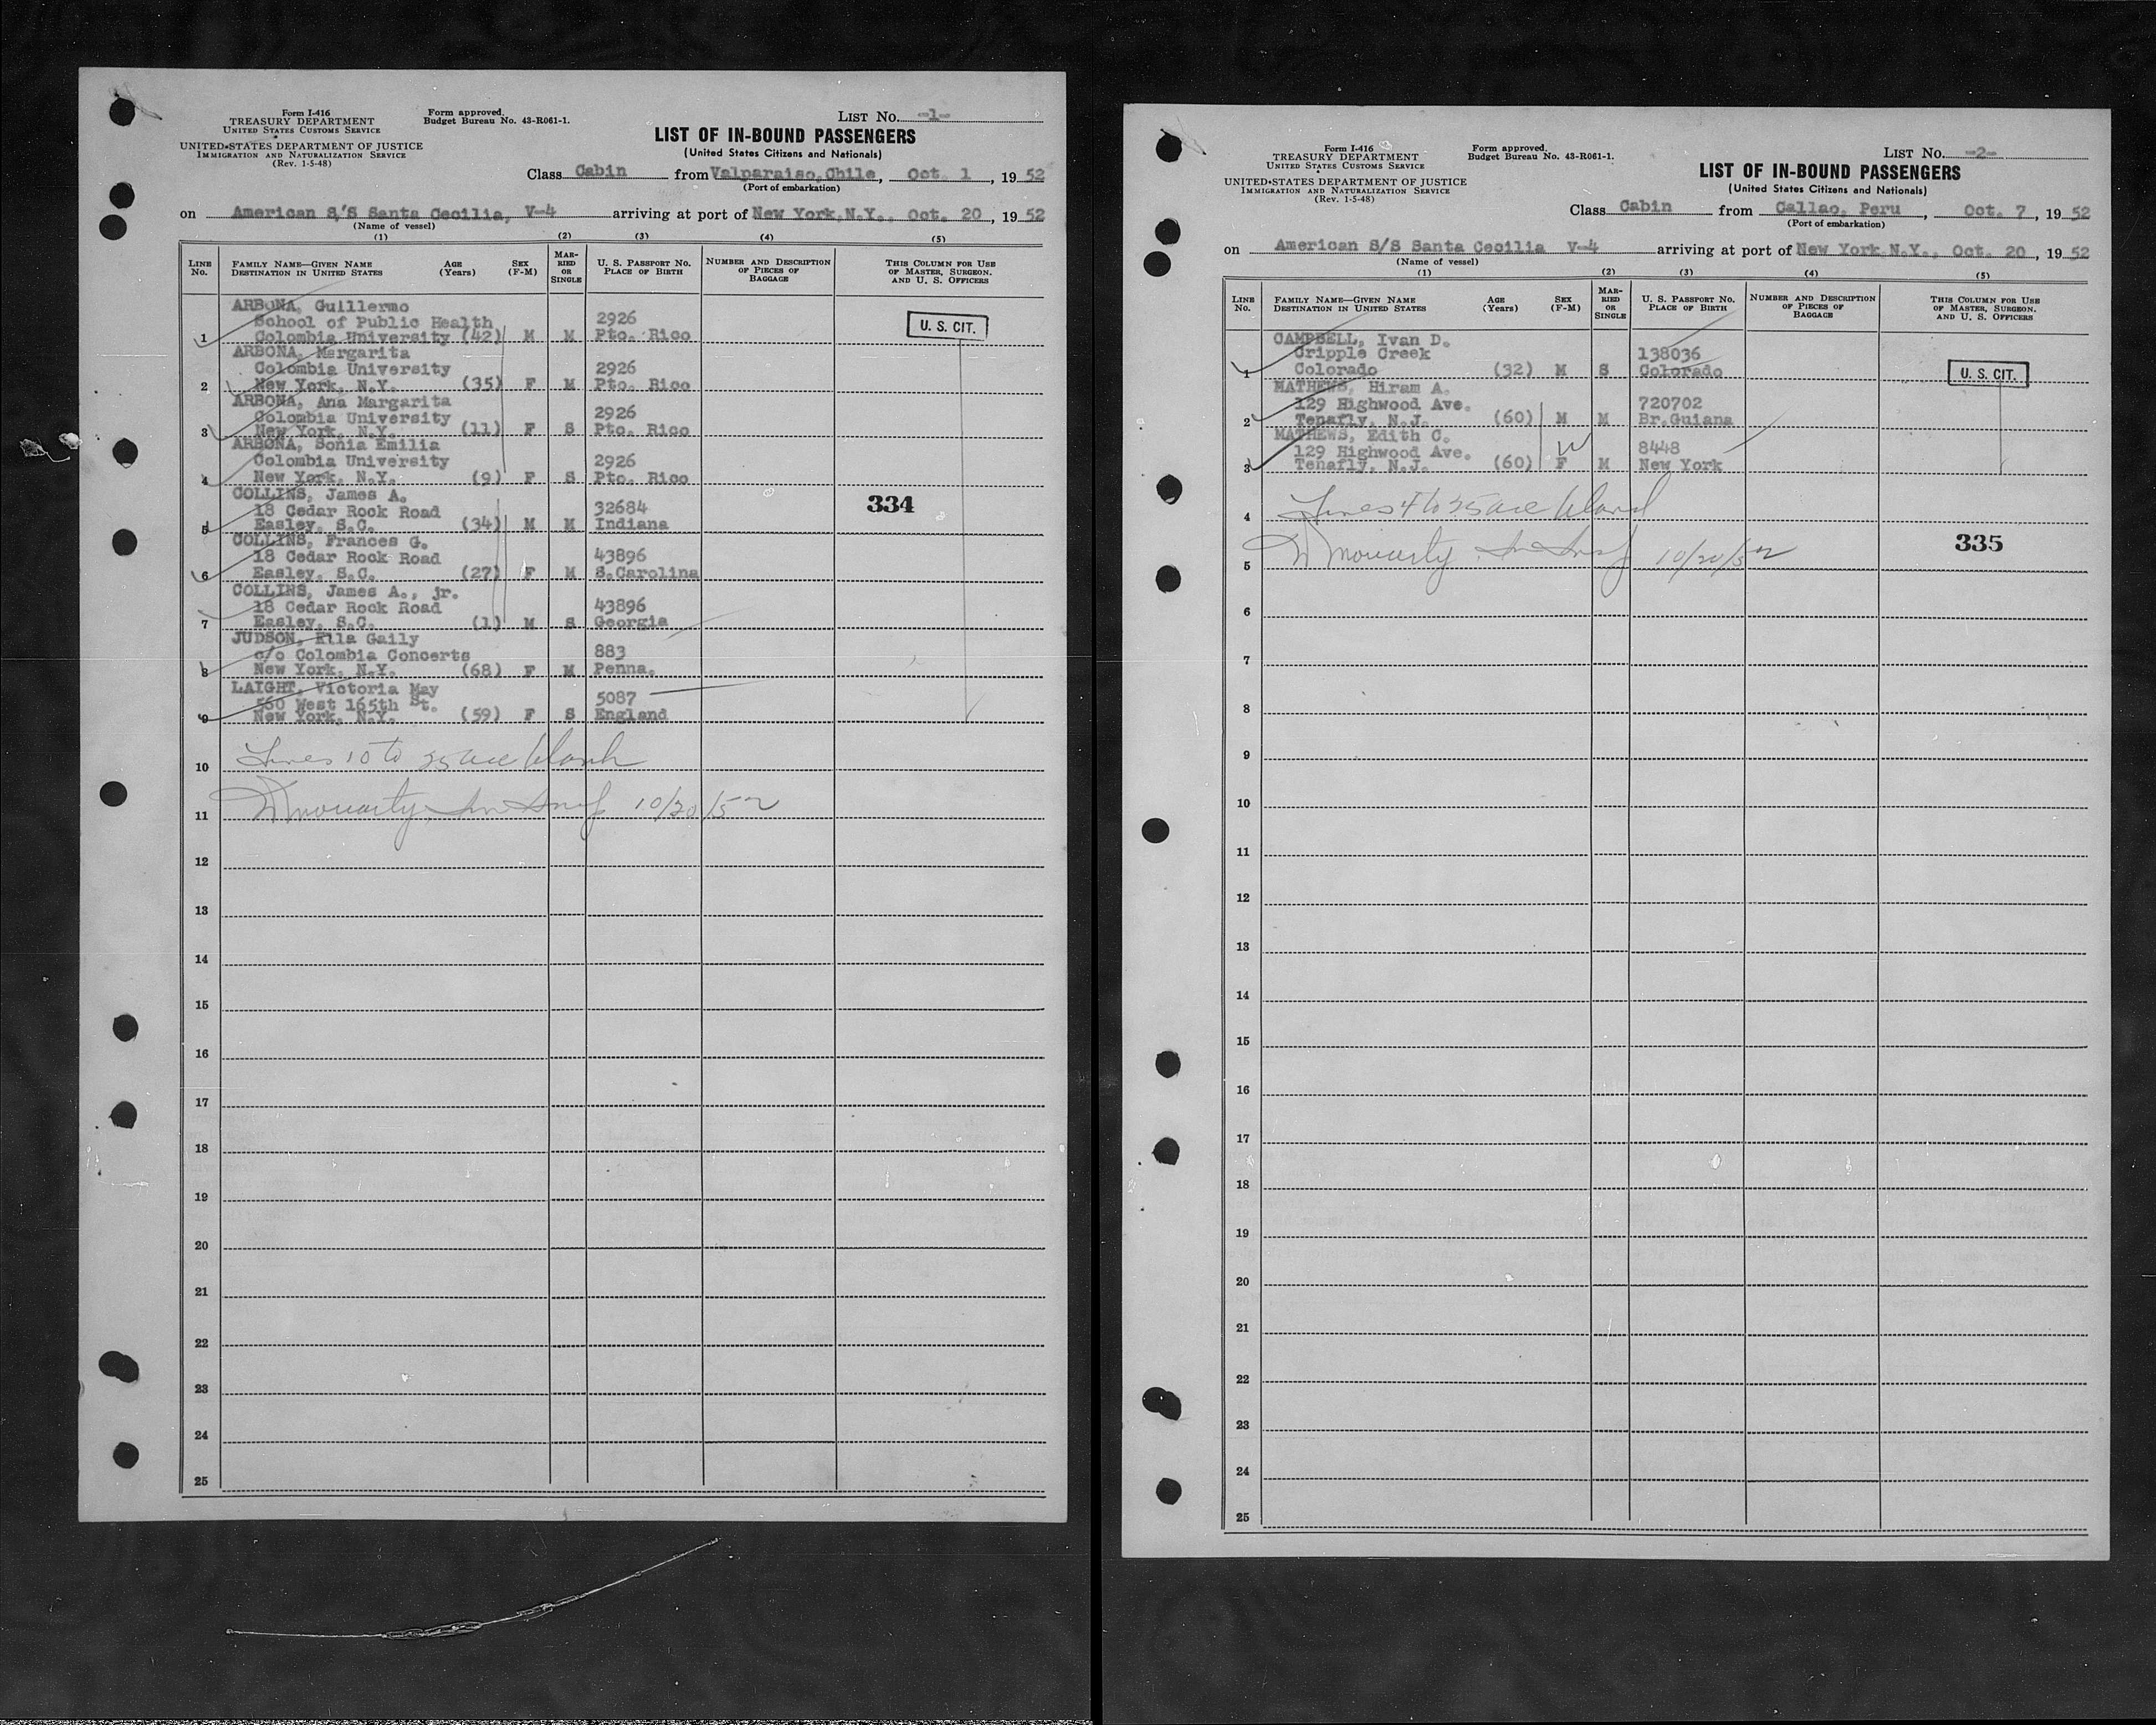 Form I-416
TREASURY DEPARTMENT
UNITED STATES CUSTOMS SERVICE
UNITED STATES DEPARTMENT OF JUSTICE
IMMIGRATION AND NATURALIZATION SERVICE
(Rev. 1-5-48)
Form approved.
Budget Bureau No. 43-R061-1.
LIST No. -1-
LIST OF IN-BOUND PASSENGERS
(United States Citizens and Nationals)
Class Cabin from Valparaiso, Chile, Oct. 1, 1952
(Port of embarkation)
on American S/S Santa Cecilia, V-4 arriving at port of New York, N.Y., Oct. 20, 1952
(Name of vessel)
(1) (2) (3) (4) (5)
LINE No. FAMILY NAME—GIVEN NAME DESTINATION IN UNITED STATES AGE (Years) SEX (F-M) MARRIED OR SINGLE U. S. PASSPORT No. PLACE OF BIRTH NUMBER AND DESCRIPTION OF PIECES OF BAGGAGE THIS COLUMN FOR USE OF MASTER, SURGEON, AND U. S. OFFICERS
ARBONA, Guillermo
School of Public Health 2926 U. S. CIT.
1 Colombia University (42) M M Pto. Rico
ARBONA, Margarita
Colombia University 2926
2 New York, N.Y. (35) F M Pto. Rico
ARBONA, Ana Margarita
Colombia University 2926
3 New York, N.Y. (11) F S Pto. Rico
ARBONA, Sonia Emilia
Colombia University 2926
4 New York, N.Y. (9) F S Pto. Rico
COLLINS, James A.
18 Cedar Rock Road 32684 334
5 Easley, S.C. (34) M M Indiana
COLLINS, Frances G.
18 Cedar Rock Road 43896
6 Easley, S.C. (27) F M S.Carolina
COLLINS, James A., jr.
18 Cedar Rock Road 43896
7 Easley, S.C. (1) M S Georgia
JUDSON, Ella Gaily
c/o Colombia Concerts 883
8 New York, N.Y. (68) F M Penna.
LAIGHT, Victoria May
560 West 165th St. 5087
9 New York, N.Y. (59) F S England
10 Lines 10 to 25 are blank
11 Moriarty 10/20/52
12
13
14
15
16
17
18
19
20
21
22
23
24
25
Form I-416
TREASURY DEPARTMENT
UNITED STATES CUSTOMS SERVICE
UNITED STATES DEPARTMENT OF JUSTICE
IMMIGRATION AND NATURALIZATION SERVICE
(Rev. 1-5-48)
Form approved.
Budget Bureau No. 43-R061-1.
LIST No. -2-
LIST OF IN-BOUND PASSENGERS
(United States Citizens and Nationals)
Class Cabin from Callao, Peru, Oct. 7, 1952
(Port of embarkation)
on American S/S Santa Cecilia V-4 arriving at port of New York, N.Y., Oct. 20, 1952
(Name of vessel)
(1) (2) (3) (4) (5)
LINE No. FAMILY NAME—GIVEN NAME DESTINATION IN UNITED STATES AGE (Years) SEX (F-M) MARRIED OR SINGLE U. S. PASSPORT No. PLACE OF BIRTH NUMBER AND DESCRIPTION OF PIECES OF BAGGAGE THIS COLUMN FOR USE OF MASTER, SURGEON, AND U. S. OFFICERS
CAMPBELL, Ivan D.
Cripple Creek 138036
1 Colorado (32) M S Colorado U. S. CIT.
MATHEWS, Hiram A.
129 Highwood Ave. 720702
2 Tenafly, N.J. (60) M M Br.Guiana
MATHEWS, Edith C.
129 Highwood Ave. 8448
3 Tenafly, N.J. (60) F M New York
4 Lines 4 to 25 are blank
5 Moriarty 10/20/52 335
6
7
8
9
10
11
12
13
14
15
16
17
18
19
20
21
22
23
24
25